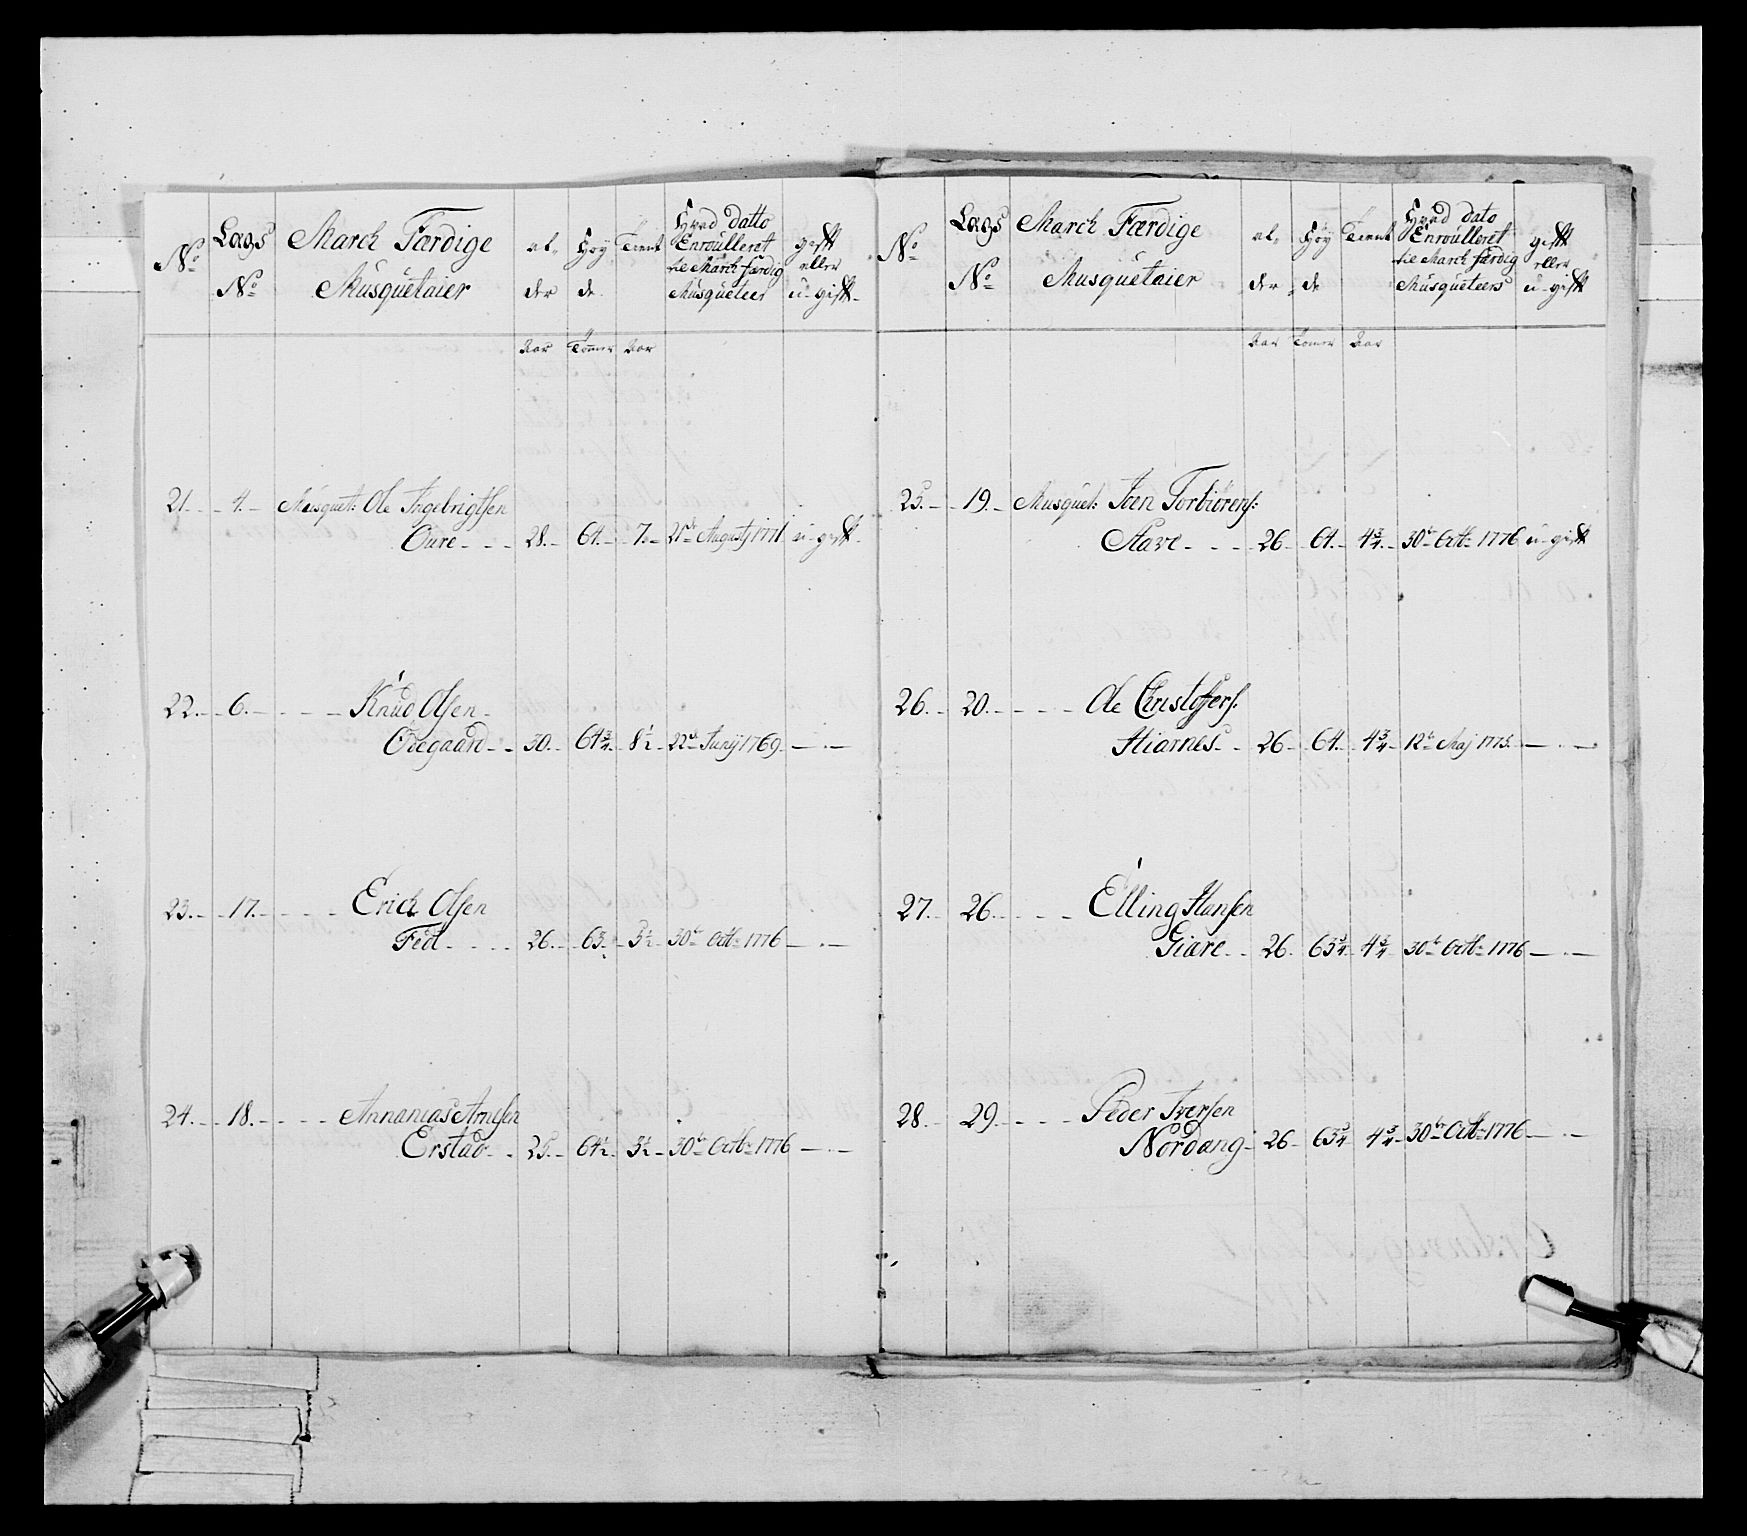 No Lags No March Færdige Musquetaier al„ der Høy de Tient Hvad datto Enroulleret til March færdig Musqueteer gift eller u-gift
Aar Tommer Aar
21. 4. Musquet: Ole Ingebrigtsen
Oure 28. 64. 7. 21de Augustj 1771 u-gift
22. 6. Knud Olsen
Øregaard 30. 64 3/4 8 1/2 22de Junij 1769 — . —
23. 17. Erich Olsen
Fed 26. 63. 3 1/2 30te Octb: 1776 — . —
24. 18. Annanias Arnesen
Erstad 25. 64 1/2 3 1/2 30te Octb: 1776 — . —
No Lags No March Færdige Musquetaier al„ der Høy de Tient Hvad dato Enroulleret til March færdig Musqueteers gift eller u-gift
Aar Tomer Aar
25. 19. Musquet: Iven Torbiørens:
Stave 26 64. 4 3/4 30te Octb: 1776 u-gift
26. 20. Ole Christofers:
Hiornes 26 64. 4 3/4 12te Maj 1775. — . —
27. 26. Elling Hansen
Giære 26. 63 3/4 4 3/4 30te Octb: 1776 — . —
28. 29. Peder Iversen
Nordang 26 63 3/4 4 3/4 30te Octb: 1776 — . —